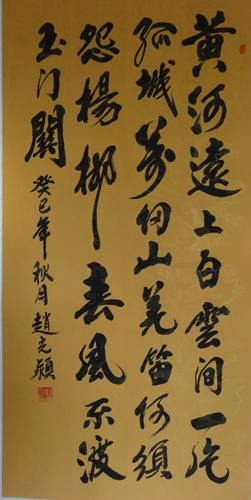 黄河遠上白雲间一片
孤城萬仞山羌笛何須
怨楊柳春風不渡
玉门關
癸巳年秋月趙光颖